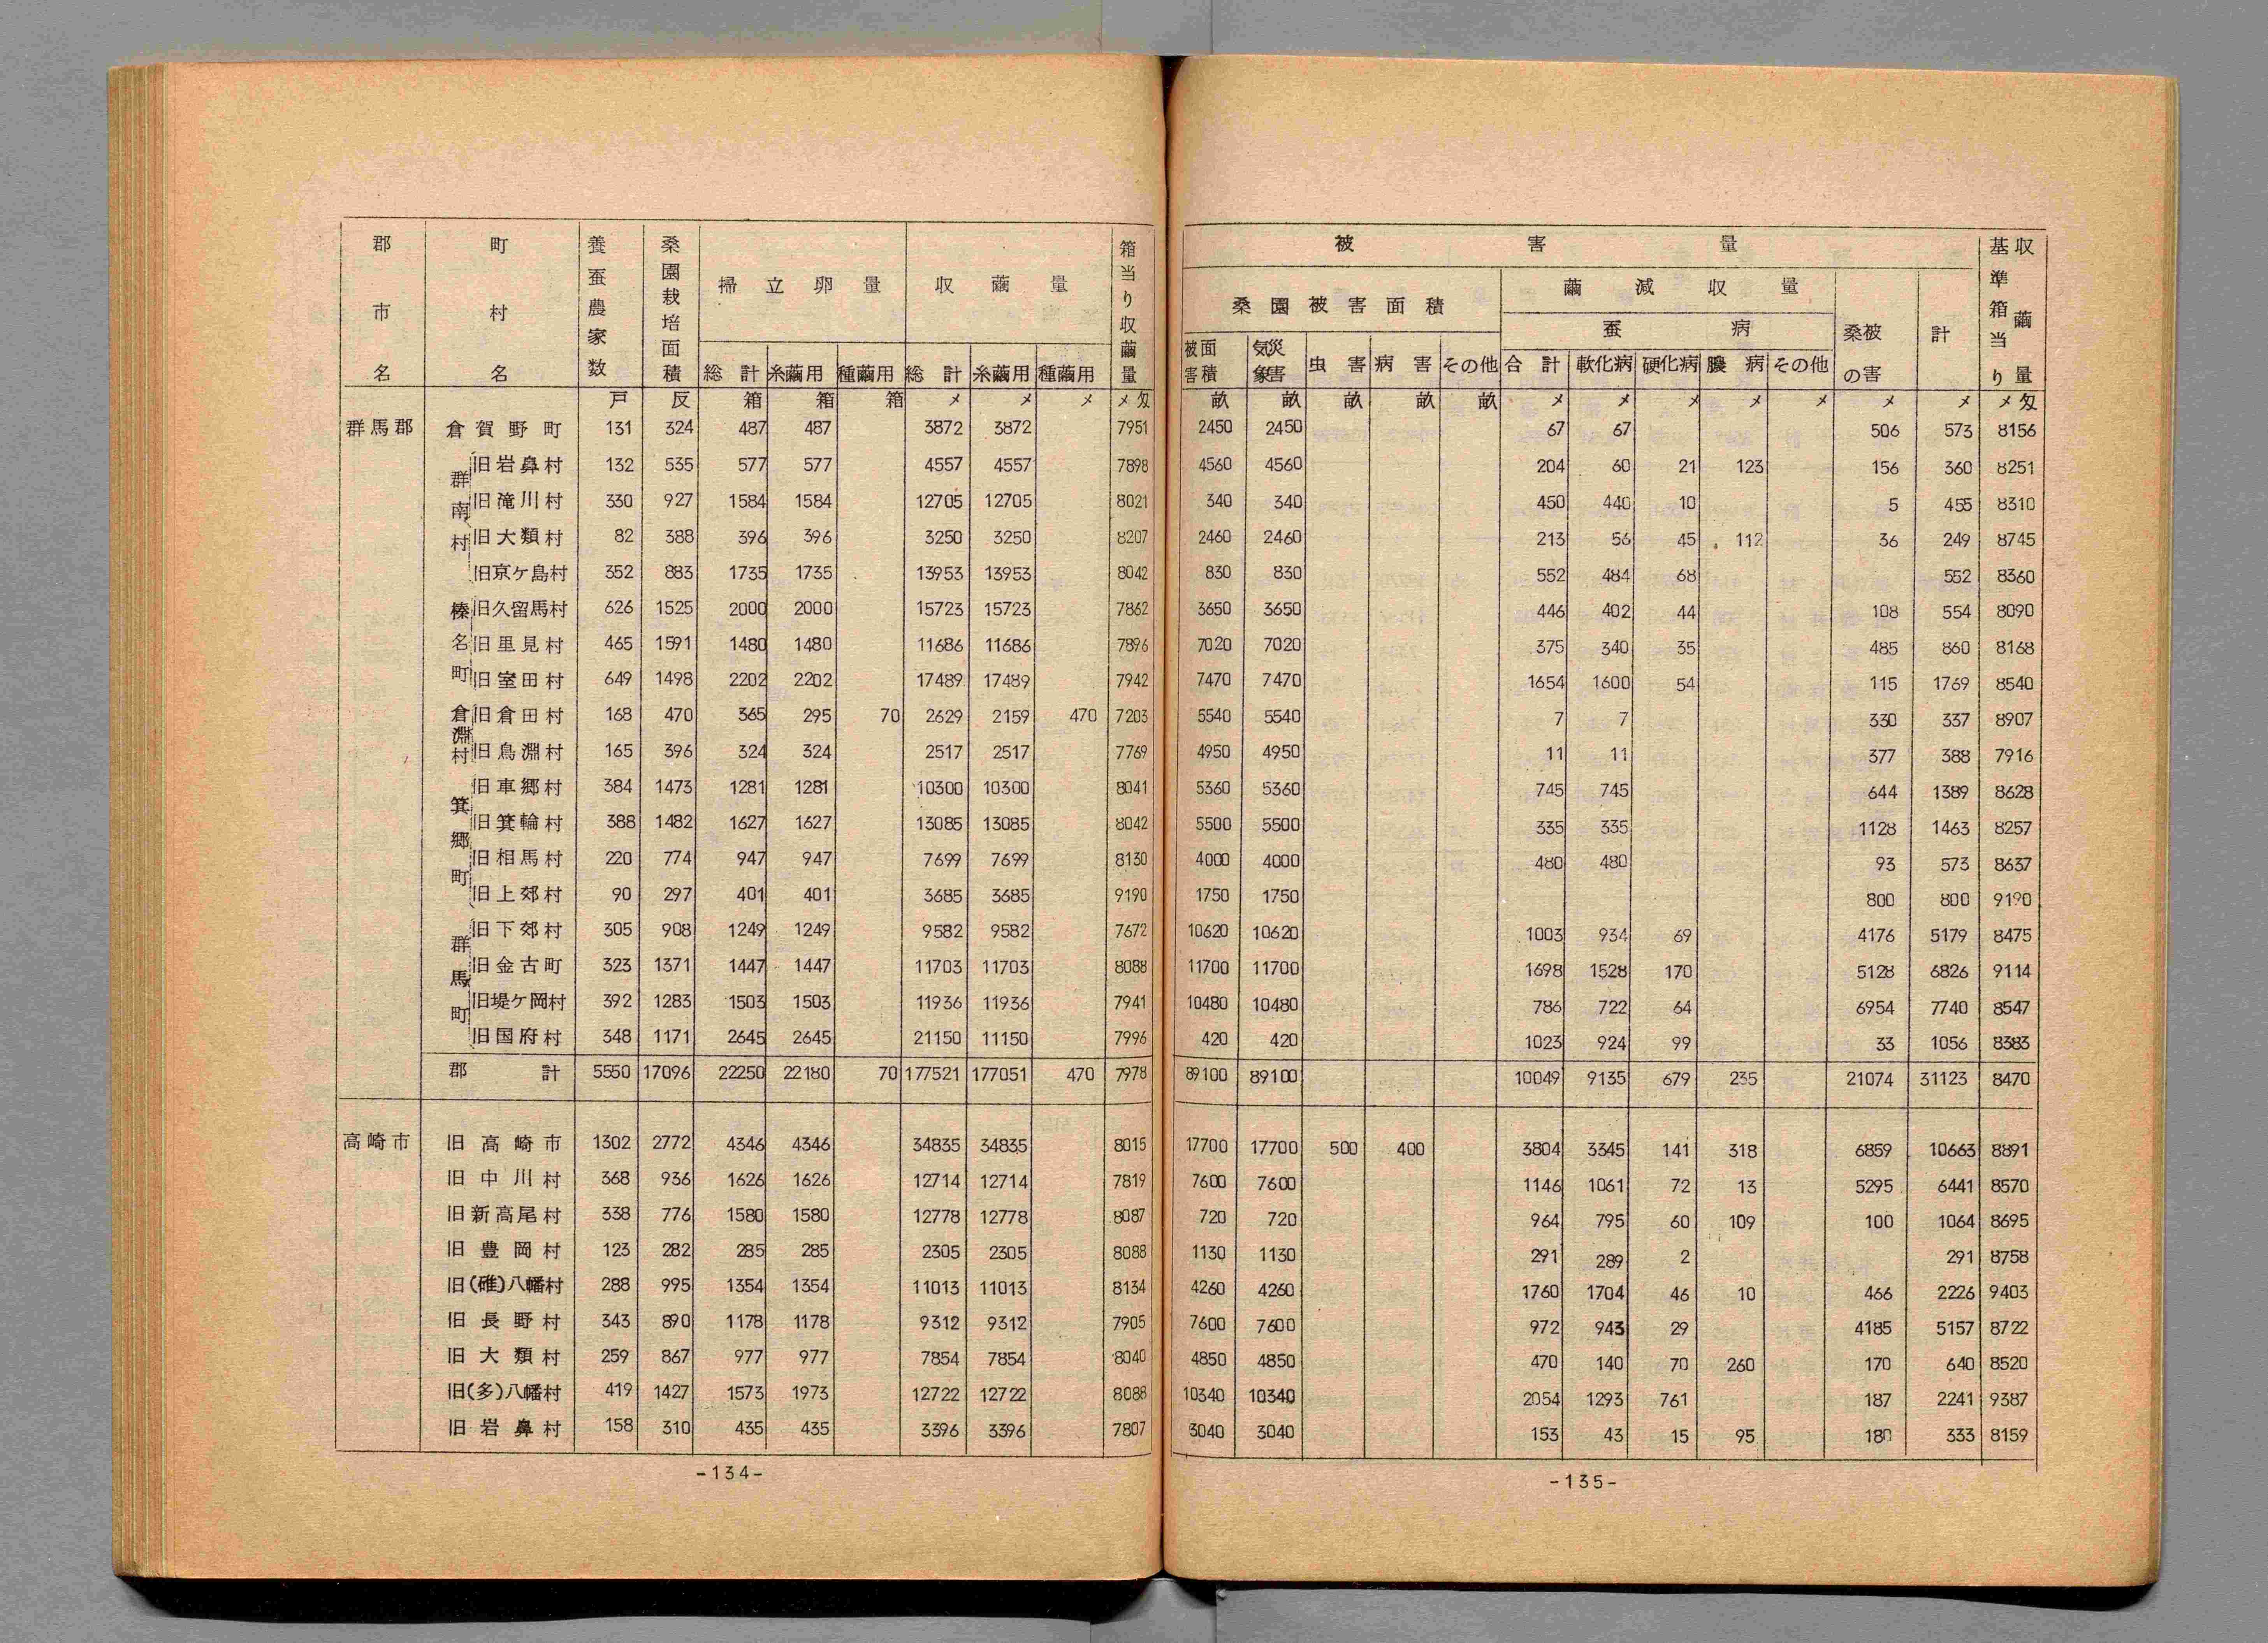 郡市名 町村名 養蚕農家数 桑園栽培面積 掃立卵量 収繭量 箱当り収繭量
総計 糸繭用 種繭用 総計 糸繭用 種繭用
戸 反 箱 箱 箱 メ メ メ メ匁
群馬郡 倉賀野町 131 324 487 487 3872 3872 7951
群南村 旧岩鼻村 132 535 577 577 4557 4557 7898
旧滝川村 330 927 1584 1584 12705 12705 8021
旧大類村 82 388 396 396 3250 3250 8207
旧京ケ島村 352 883 1735 1735 13953 13953 8042
榛名町 旧久留馬村 626 1525 2000 2000 15723 15723 7862
旧里見村 465 1591 1480 1480 11686 11686 7896
旧室田村 649 1498 2202 2202 17489 17489 7942
倉淵村 旧倉田村 168 470 365 295 70 2629 2159 470 7203
旧鳥淵村 165 396 324 324 2517 2517 7769
箕郷町 旧車郷村 384 1473 1281 1281 10300 10300 8041
旧箕輪村 388 1482 1627 1627 13085 13085 8042
旧相馬村 220 774 947 947 7699 7699 8130
旧上郊村 90 297 401 401 3685 3685 9190
群馬町 旧下郊村 305 908 1249 1249 9582 9582 7672
旧金古町 323 1371 1447 1447 11703 11703 8088
旧堤ケ岡村 392 1283 1503 1503 11936 11936 7941
旧国府村 348 1171 2645 2645 21150 11150 7996
郡計 5550 17096 22250 22180 70 177521 177051 470 7978
高崎市 旧高崎市 1302 2772 4346 4346 34835 34835 8015
旧中川村 368 936 1626 1626 12714 12714 7819
旧新高尾村 338 776 1580 1580 12778 12778 8087
旧豊岡村 123 282 285 285 2305 2305 8088
旧(碓)八幡村 288 995 1354 1354 11013 11013 8134
旧長野村 343 890 1178 1178 9312 9312 7905
旧大類村 259 867 977 977 7854 7854 8040
旧(多)八幡村 419 1427 1573 1973 12722 12722 8088
旧岩鼻村 158 310 435 435 3396 3396 7807
-134-
被害量 基準箱当り収繭量
桑園被害面積 繭減収量 桑被の害 計
蚕病
被害面積 気象災害 虫害 病害 その他 合計 軟化病 硬化病 膿病 その他
畝 畝 畝 畝 畝 メ メ メ メ メ メ メ メ匁
2450 2450 67 67 506 573 8156
4560 4560 204 60 21 123 156 360 8251
340 340 450 440 10 5 455 8310
2460 2460 213 56 45 112 36 249 8745
830 830 552 484 68 552 8360
3650 3650 446 402 44 108 554 8090
7020 7020 375 340 35 485 860 8168
7470 7470 1654 1600 54 115 1769 8540
5540 5540 7 7 330 337 8907
4950 4950 11 11 377 388 7916
5360 5360 745 745 644 1389 8628
5500 5500 335 335 1128 1463 8257
4000 4000 480 480 93 573 8637
1750 1750 800 800 9190
10620 10620 1003 934 69 4176 5179 8475
11700 11700 1698 1528 170 5128 6826 9114
10480 10480 786 722 64 6954 7740 8547
420 420 1023 924 99 33 1056 8383
89100 89100 10049 9135 679 235 21074 31123 8470
17700 17700 500 400 3804 3345 141 318 6859 10663 8891
7600 7600 1146 1061 72 13 5295 6441 8570
720 720 964 795 60 109 100 1064 8695
1130 1130 291 289 2 291 8758
4260 4260 1760 1704 46 10 466 2226 9403
7600 7600 972 943 29 4185 5157 8722
4850 4850 470 140 70 260 170 640 8520
10340 10340 2054 1293 761 187 2241 9387
3040 3040 153 43 15 95 180 333 8159
-135-